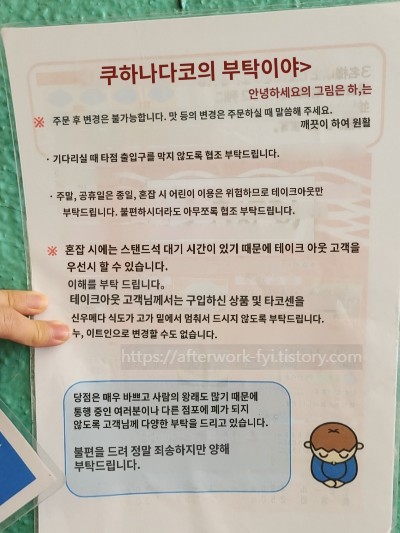 쿠하나다코의 부탁이야>
안녕하세요의 그림은 하,는
※ 주문 후 변경은 불가능합니다. 맛 등의 변경은 주문하실 때 말씀해 주세요.
깨끗이 하여 원활
· 기다리실 때 타점 출입구를 막지 않도록 협조 부탁드립니다.
· 주말, 공휴일은 종일, 혼잡 시 어린이 이용은 위험하므로 테이크아웃만
부탁드립니다. 불편하시더라도 아무쪼록 협조 부탁드립니다.
※ 혼잡 시에는 스탠드석 대기 시간이 있기 때문에 테이크 아웃 고객을
우선시 할 수 있습니다.
이해를 부탁 드립니다.
테이크아웃 고객님께서는 구입하신 상품 및 타코센을
신우메다 식도가 고가 밑에서 멈춰서 드시지 않도록 부탁드립니다.
누, 이트인으로 변경할 수도 없습니다.
https://afterwork-fyi.tistory.com
당점은 매우 바쁘고 사람의 왕래도 많기 때문에
통행 중인 여러분이나 다른 점포에 폐가 되지
않도록 고객님께 다양한 부탁을 드리고 있습니다.
불편을 드려 정말 죄송하지만 양해
부탁드립니다.